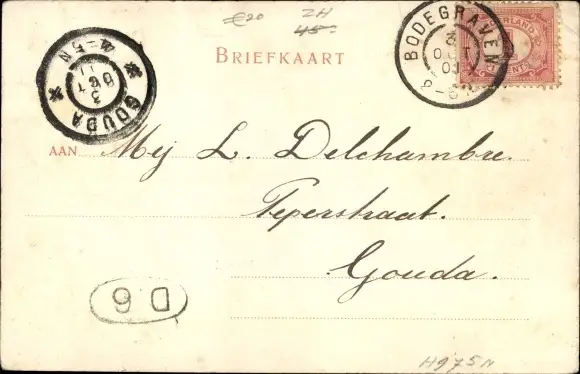 €20 ZH
45-
BRIEFKAART
BODEGRAVEN
3
OCT
01
NEDERLAND
CENTS
4-5N
3
OCT
GOUDA
AAN Mej L. Delchambre.
Peperstraat.
Gouda.
D 6
H975N